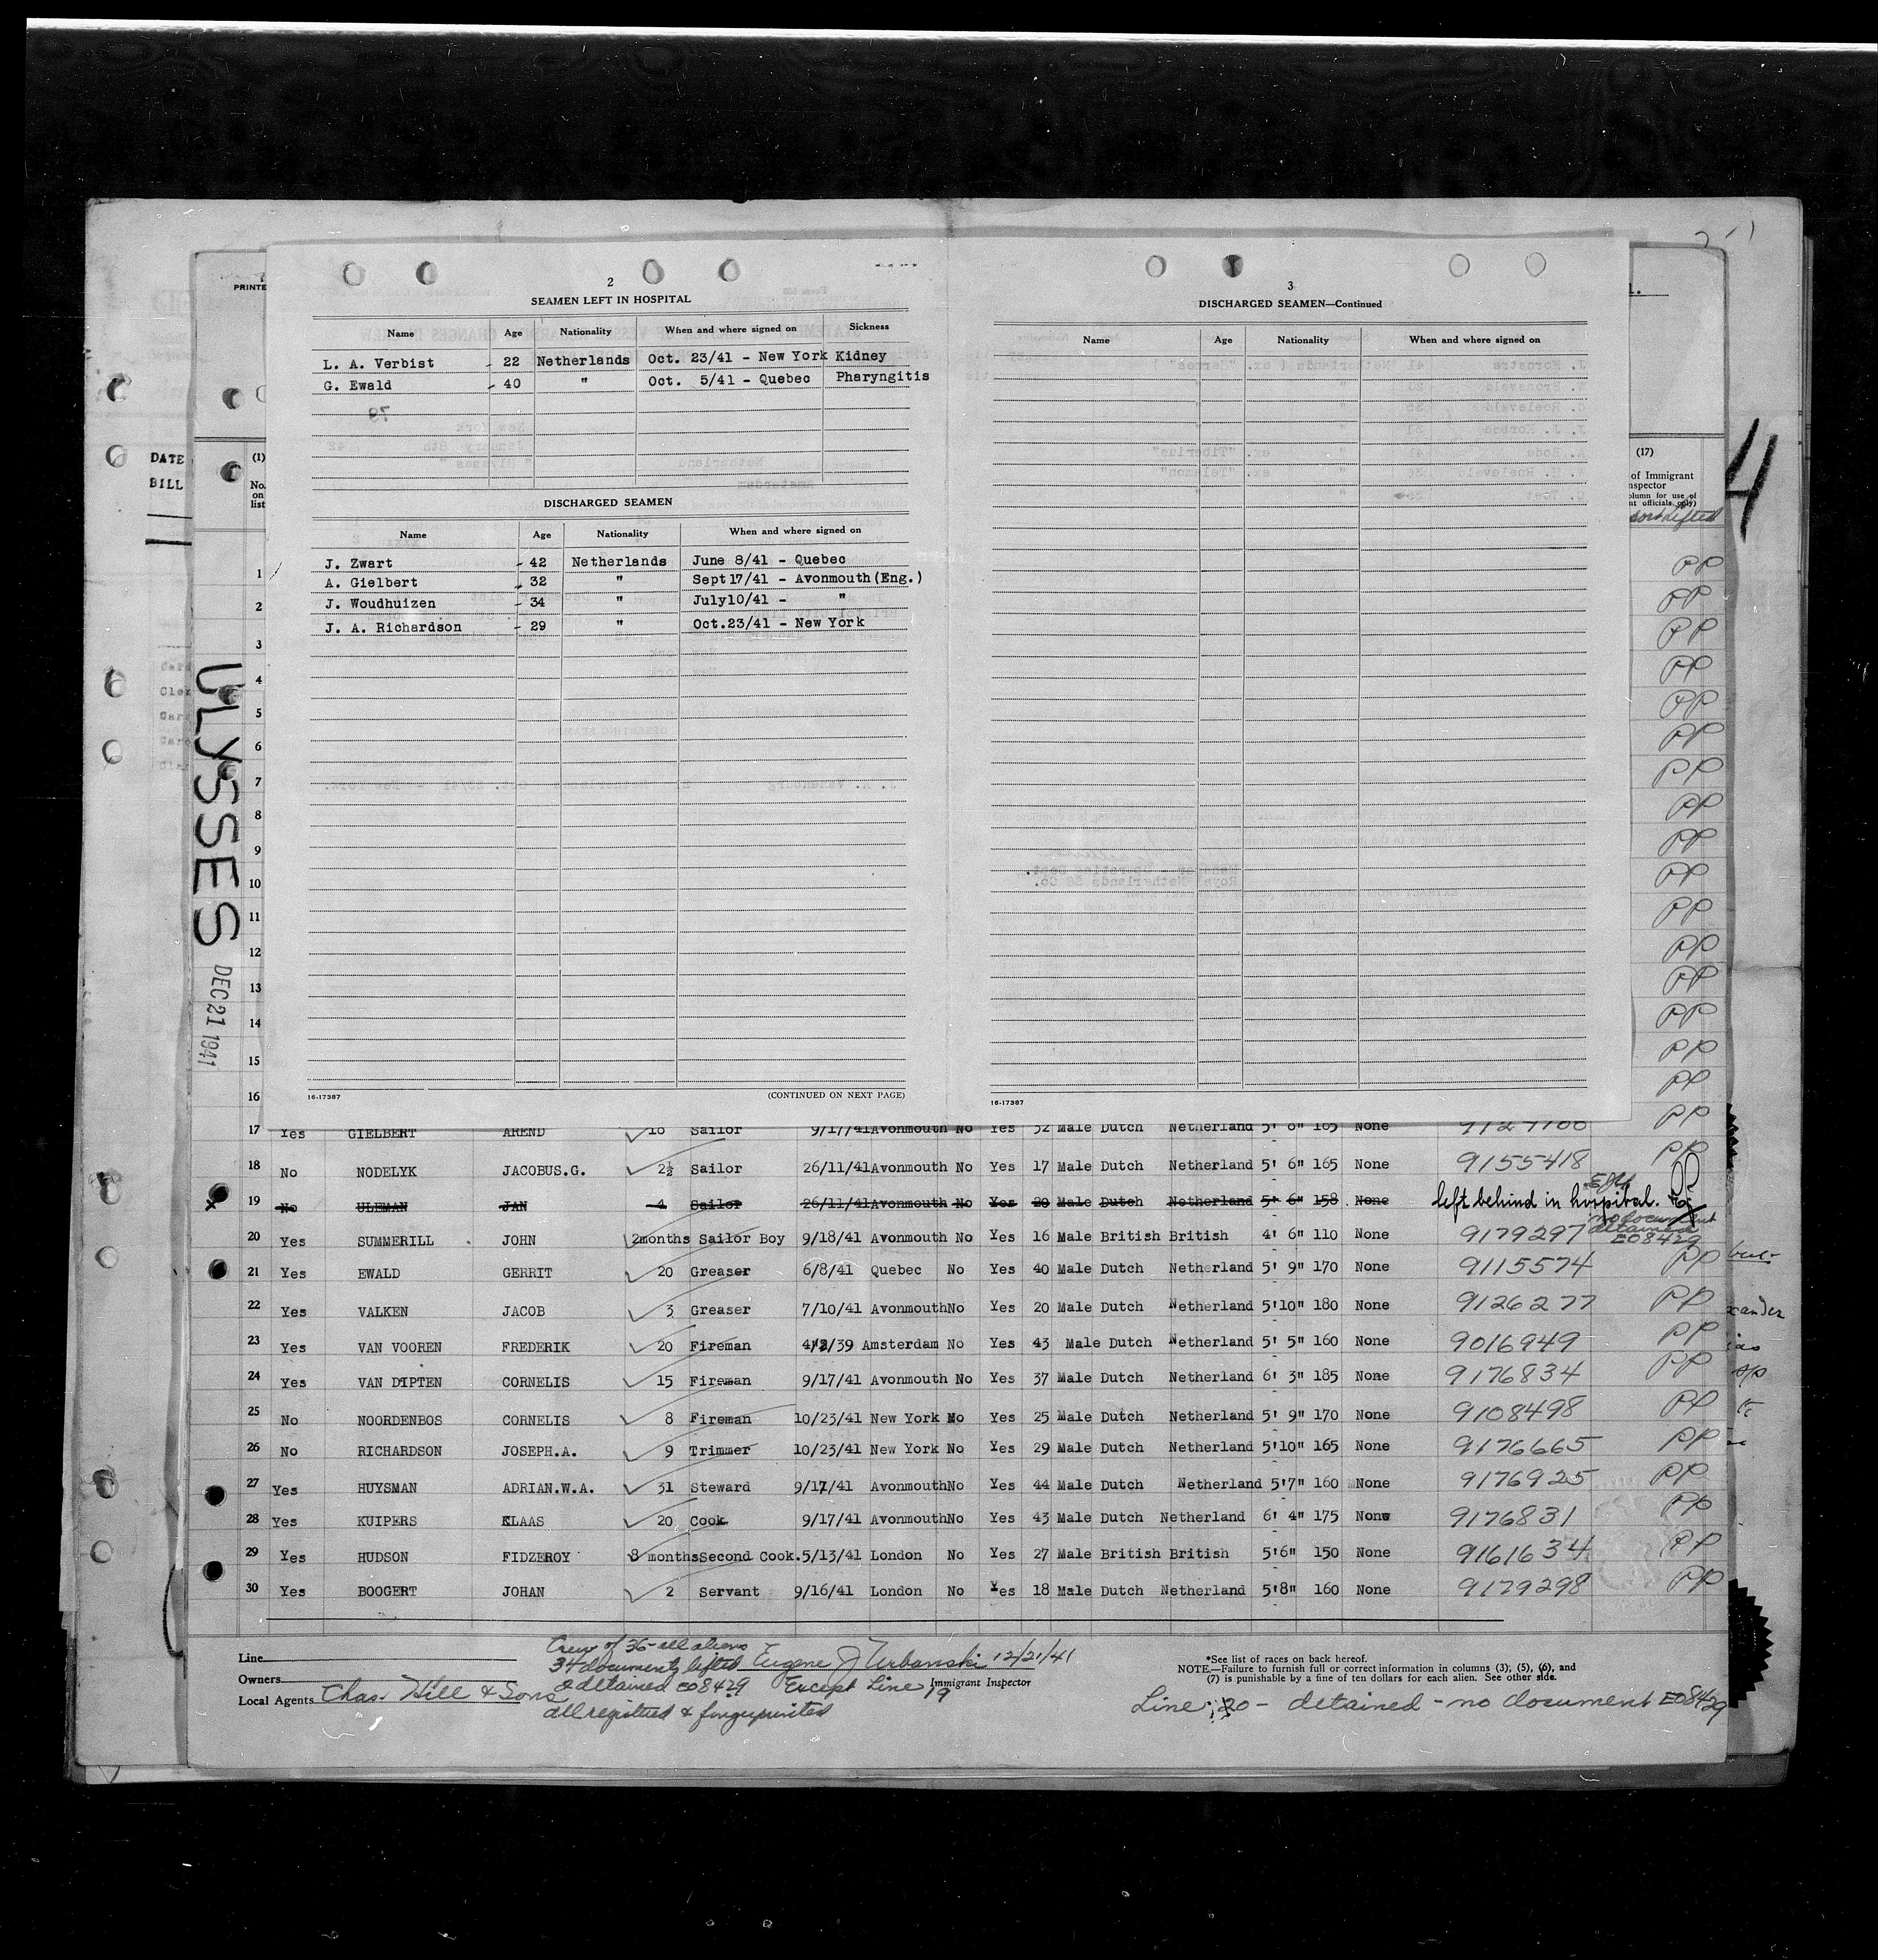 2
SEAMEN LEFT IN HOSPITAL
Name Age Nationality When and where signed on Sickness
L. A. Verbist - 22 Netherlands Oct. 23/41 - New York Kidney
G. Ewald - 40 " Oct. 5/41 - Quebec Pharyngitis
DISCHARGED SEAMEN
Name Age Nationality When and where signed on
J. Zwart - 42 Netherlands June 8/41 - Quebec
A. Gielbert - 32 " Sept 17/41 - Avonmouth (Eng.)
J. Woudhuizen - 34 " July10/41 - "
J. A. Richardson - 29 " Oct.23/41 - New York
16-17387 (CONTINUED ON NEXT PAGE)
3
DISCHARGED SEAMEN—Continued
Name Age Nationality When and where signed on
16-17387
PRINTE
DATE
BILL
(1)
No.
on
list
(17)
of Immigrant
nspector
olumn for use of
nt officials only)
4
ULYSSES
DEC 21 1941
1 PP
2 PP
3 PP
4 PP
5 PP
6 PP
7 PP
8 PP
9 PP
10 PP
11 PP
12 PP
13 PP
14 PP
15 PP
16 PP
17 Yes GIELBERT AREND 18 Sailor 9/17/41 Avonmouth No Yes 32 Male Dutch Netherland 5' 8" 165 None PP
18 No NODELYK JACOBUS.G. 2½ Sailor 26/11/41 Avonmouth No Yes 17 Male Dutch Netherland 5' 6" 165 None 9155418 PP
19 No ULEMAN JAN 4 Sailor 26/11/41 Avonmouth No Yes 20 Male Dutch Netherland 5' 6" 158 None left behind in hospital.
no document
detained
E08429
20 Yes SUMMERILL JOHN 2months Sailor Boy 9/18/41 Avonmouth No Yes 16 Male British British 4' 6" 110 None 9179297
21 Yes EWALD GERRIT 20 Greaser 6/8/41 Quebec No Yes 40 Male Dutch Netherland 5' 9" 170 None 9115574 PP
22 Yes VALKEN JACOB 3 Greaser 7/10/41 Avonmouth No Yes 20 Male Dutch Netherland 5'10" 180 None 9126277 PP
23 Yes VAN VOOREN FREDERIK 20 Fireman 4/2/39 Amsterdam No Yes 43 Male Dutch Netherland 5' 5" 160 None 9016949 PP
24 Yes VAN DIPTEN CORNELIS 15 Fireman 9/17/41 Avonmouth No Yes 37 Male Dutch Netherland 6' 3" 185 None 9176834 PP
25 No NOORDENBOS CORNELIS 8 Fireman 10/23/41 New York No Yes 25 Male Dutch Netherland 5' 9" 170 None 9108498 PP
26 No RICHARDSON JOSEPH.A. 9 Trimmer 10/23/41 New York No Yes 29 Male Dutch Netherland 5'10" 165 None 9176665 PP
27 Yes HUYSMAN ADRIAN.W.A. 31 Steward 9/17/41 Avonmouth No Yes 44 Male Dutch Netherland 5'7" 160 None 9176925 PP
28 Yes KUIPERS KLAAS 20 Cook 9/17/41 Avonmouth No Yes 43 Male Dutch Netherland 6' 4" 175 None 9176831 PP
29 Yes HUDSON FIDZEROY 8 months Second Cook. 5/13/41 London No Yes 27 Male British British 5'6" 150 None 9161634 PP
30 Yes BOOGERT JOHAN 2 Servant 9/16/41 London No Yes 18 Male Dutch Netherland 5'8" 160 None 9179298 PP
Crew of 36 - all aliens
Line
34 documents lifted Eugene J Urbanski 12/21/41
Owners
2 detained E08429 Except Line 19 Immigrant Inspector
Local Agents Chas. Hill & Sons
all registred & fingerprinted
*See list of races on back hereof.
NOTE.—Failure to furnish full or correct information in columns (3), (5), (6), and
(7) is punishable by a fine of ten dollars for each alien. See other side.
Line 20 - detained - no document E08429